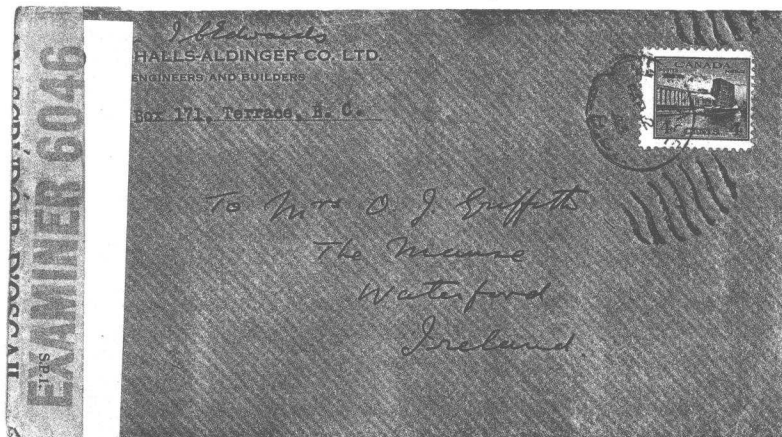 I C Edwards
HALLS-ALDINGER CO. LTD.
ENGINEERS AND BUILDERS
Box 171, Terrace, B. C.
CANADA
CENTS
To Mrs O. J. Griffith
The Manse
Waterford
Ireland
EXAMINER 6046
S.P.I.